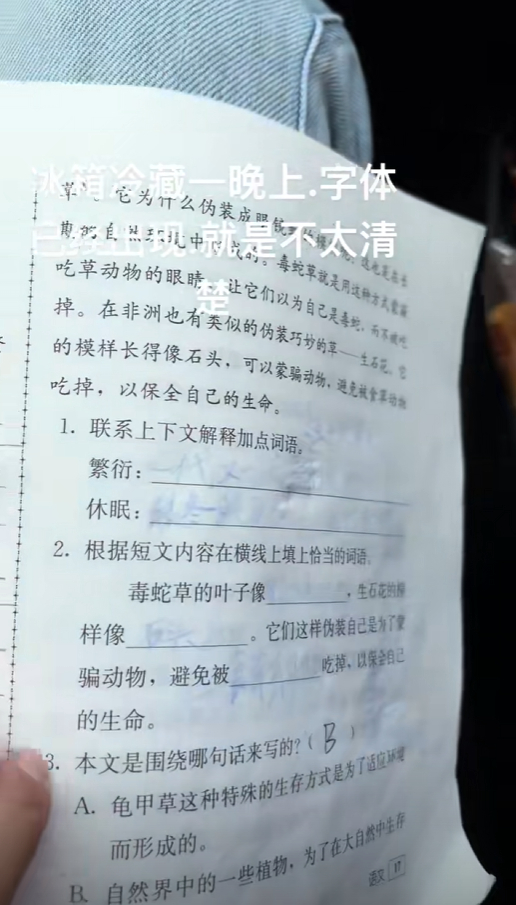 冰箱冷藏一晚上.字体
已经出现.就是不太清
楚
草 它为什么伪装成眼镜
自然环境中 的。毒蛇草就是用这种方式蒙骗
吃草动物的眼睛,让它们以为自己是毒蛇,而不敢吃
掉。在非洲也有类似的伪装巧妙的草——生石花。它
的模样长得像石头,可以蒙骗动物,避免被食草动物
吃掉,以保全自己的生命。
1. 联系上下文解释加点词语。
繁衍: 一代又
休眠:
2. 根据短文内容在横线上填上恰当的词语。
毒蛇草的叶子像________,生石花的模
样像 石头 。它们这样伪装自己是为了蒙
骗动物,避免被________吃掉,以保全自己
的生命。
3. 本文是围绕哪句话来写的?( B )
A. 龟甲草这种特殊的生存方式是为了适应环境
而形成的。
B. 自然界中的一些植物,为了在大自然中生存
语文 17